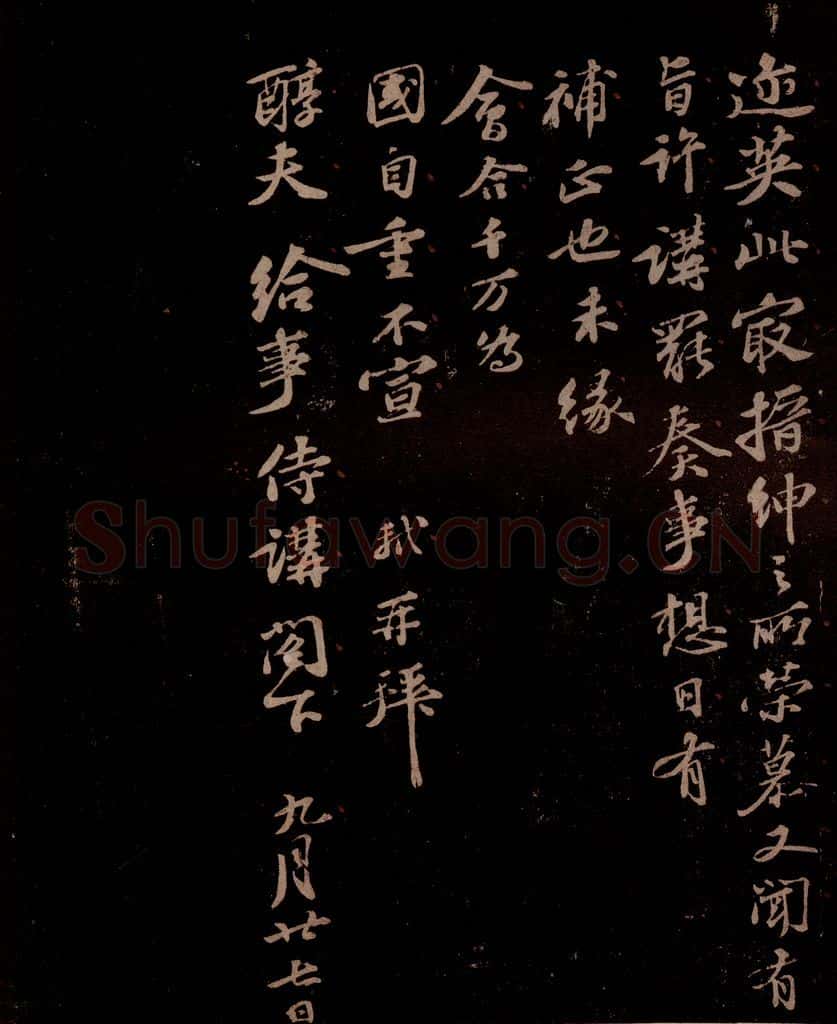 迩英此最搢紳之所榮慕又聞有
旨許講罷奏事想日有
補正也未緣
會合千万為
國自重不宣 軾再拜
醇夫給事侍講閣下 九月廿七日
Shufawang.CN